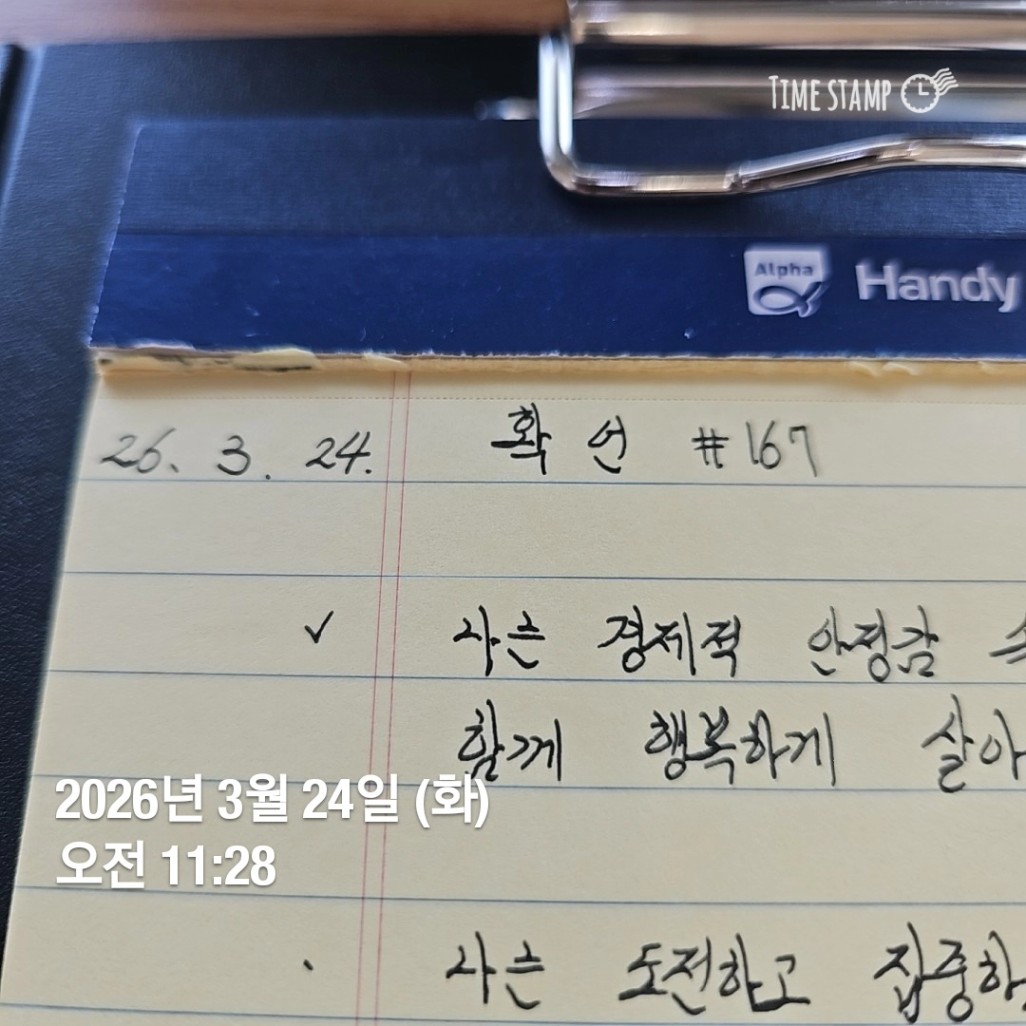 TIME STAMP
Alpha
Handy
26. 3. 24. 확언 #167
✓ 나는 경제적 안정감 속
함께 행복하게 살아
2026년 3월 24일 (화)
오전 11:28
· 나는 도전하고 집중하